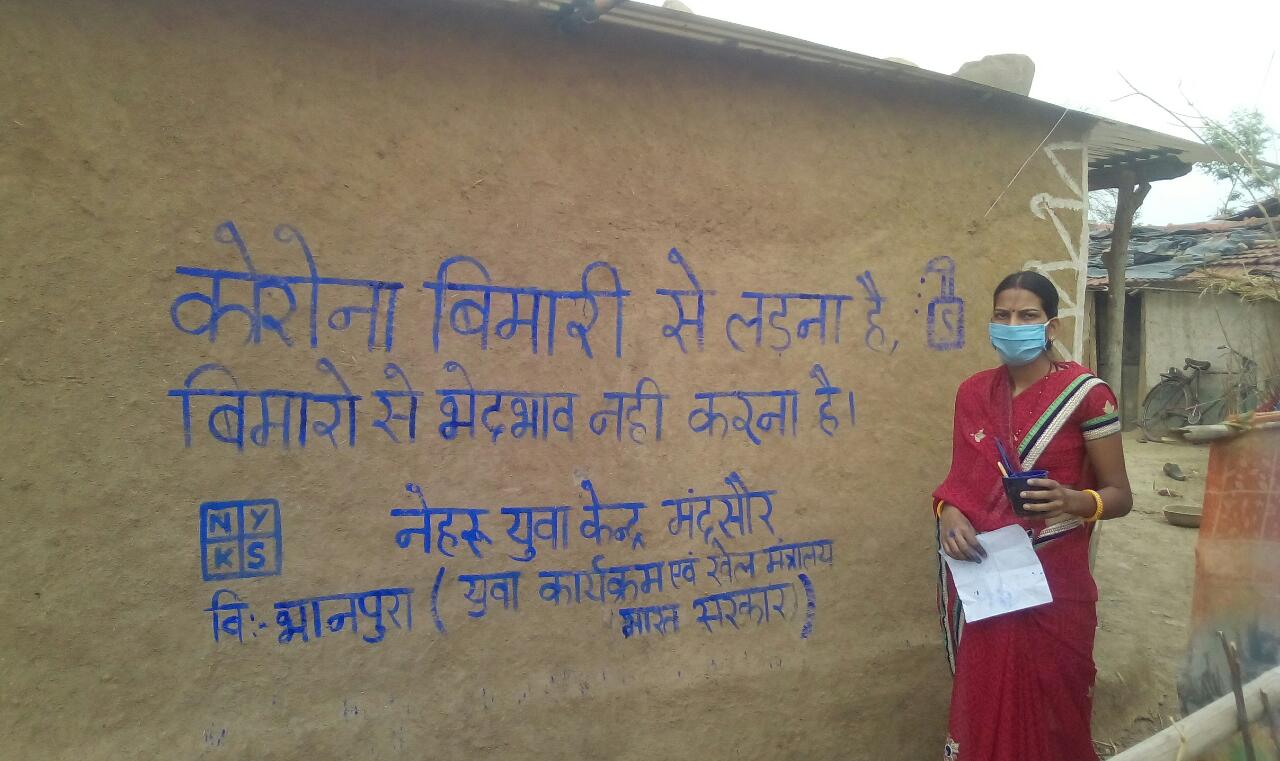 कोरोना बिमारी से लड़ना है,
बिमारो से भेदभाव नही करना है।
नेहरू युवा केन्द्र मंद्सौर
NY
KS
वि:- भानपुरा (युवा कार्यक्रम एवं खेल मंत्रालय
भारत सरकार)